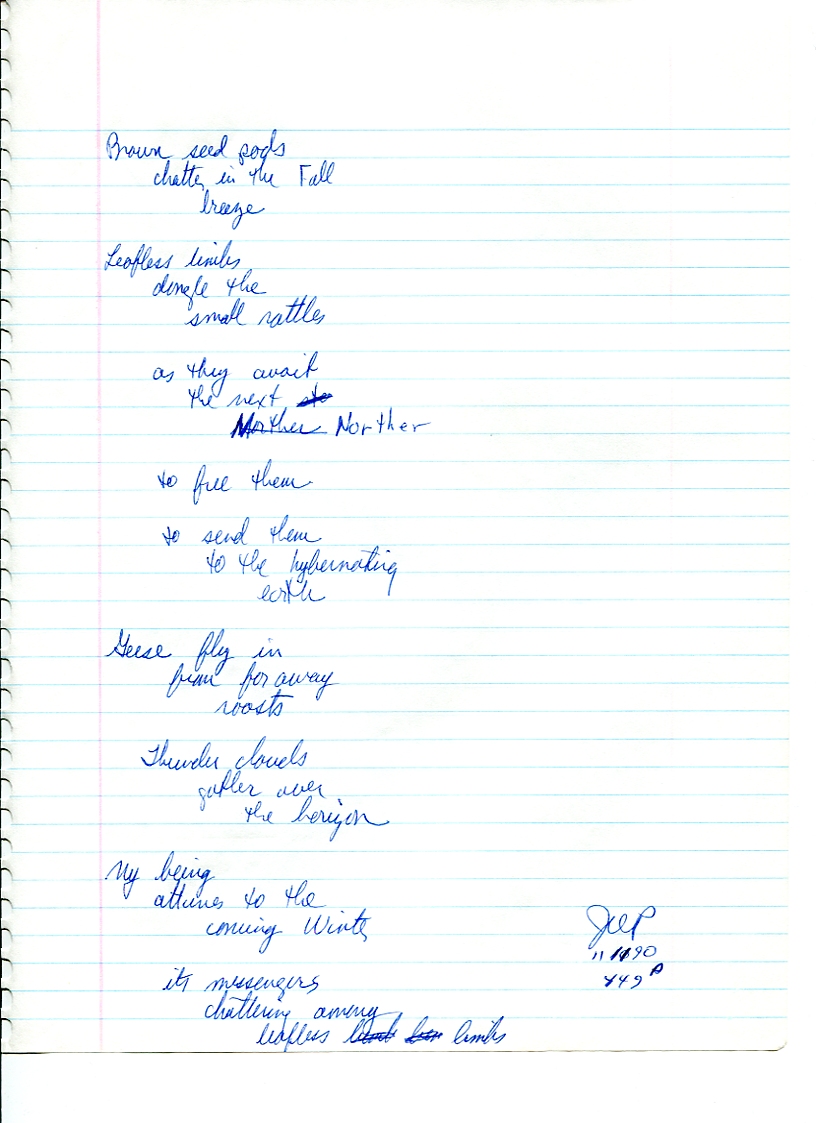 Brown seed pods
chatter in the Fall
breeze
Leafless limbs
dangle the
small rattles
as they await
the next
Norther
to free them
to send them
to the hybernating
earth
Geese fly in
from far away
roosts
Thunder clouds
gather over
the horizon
My being
attunes to the
coming Winter
its messengers
chattering among
leafless limbs